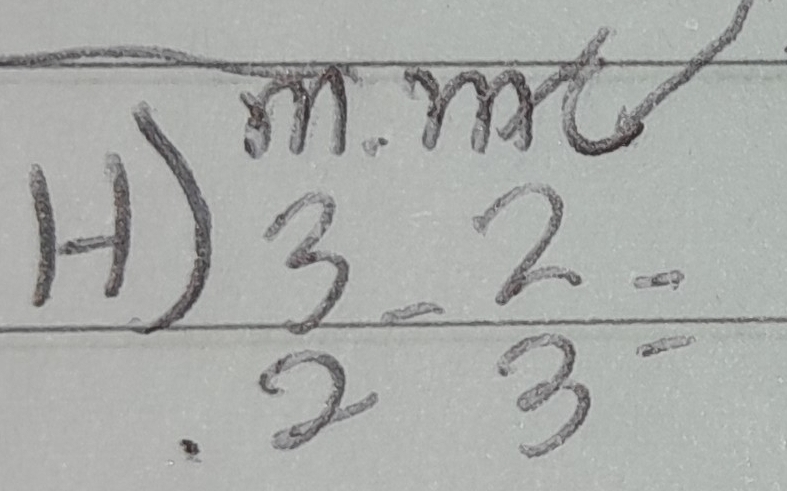 m.m
H) 3 - 2 =
2 3